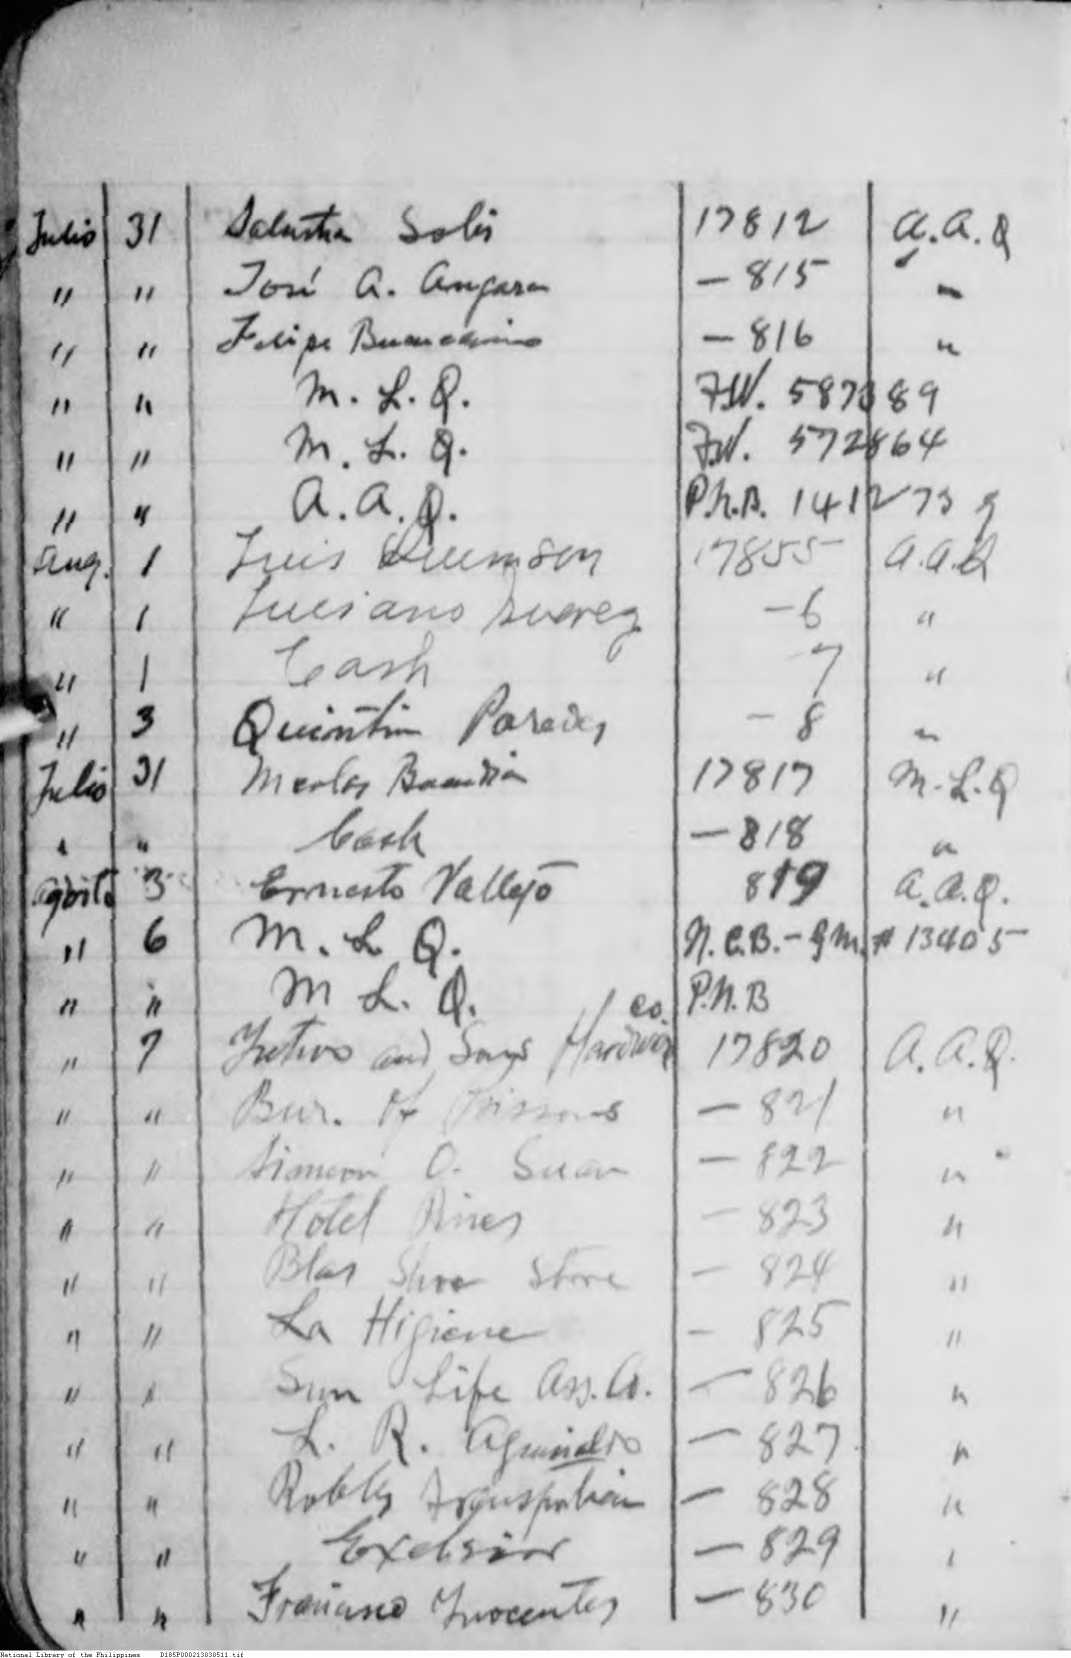 Julio 31 Solis 17812 A.A.Q
" " José A. Angara - 815 "
" " Felipe Buencamino - 816 "
" " M. L. Q. F.W. 587389
" " M. L. Q. F.W. 572864
" " A. A. Q. P.N.B. 141273 g
Aug. 1 Luis 17855 A.A.Q
" 1 Luciano Suarez - 6 "
" 1 Cash - 7 "
" 3 Quintin Paredes - 8 "
Julio 31 17817 M.L.Q
" " Cash - 818 "
Agosto 3 Ernesto Vallejo 819 A.A.Q.
" 6 M. L. Q. N.C.B. - # 13405
" " M L. Q. P.N.B
" 7 Yutivo and Sons Hardware Co. 17820 A. A. Q.
" " Bur. of Prisons - 821 "
" " Simeon O. - 822 "
" " Hotel Pines - 823 "
" " Blas Shoe Store - 824 "
" " La Higiene - 825 "
" " Sun Life Ass. Co. - 826 "
" " L. R. Aguinaldo - 827 "
" " Robles Transportation - 828 "
" " Excelsior - 829 "
" " Francisco Inocentes - 830 "
National Library of the Philippines D185P000213030511.tif